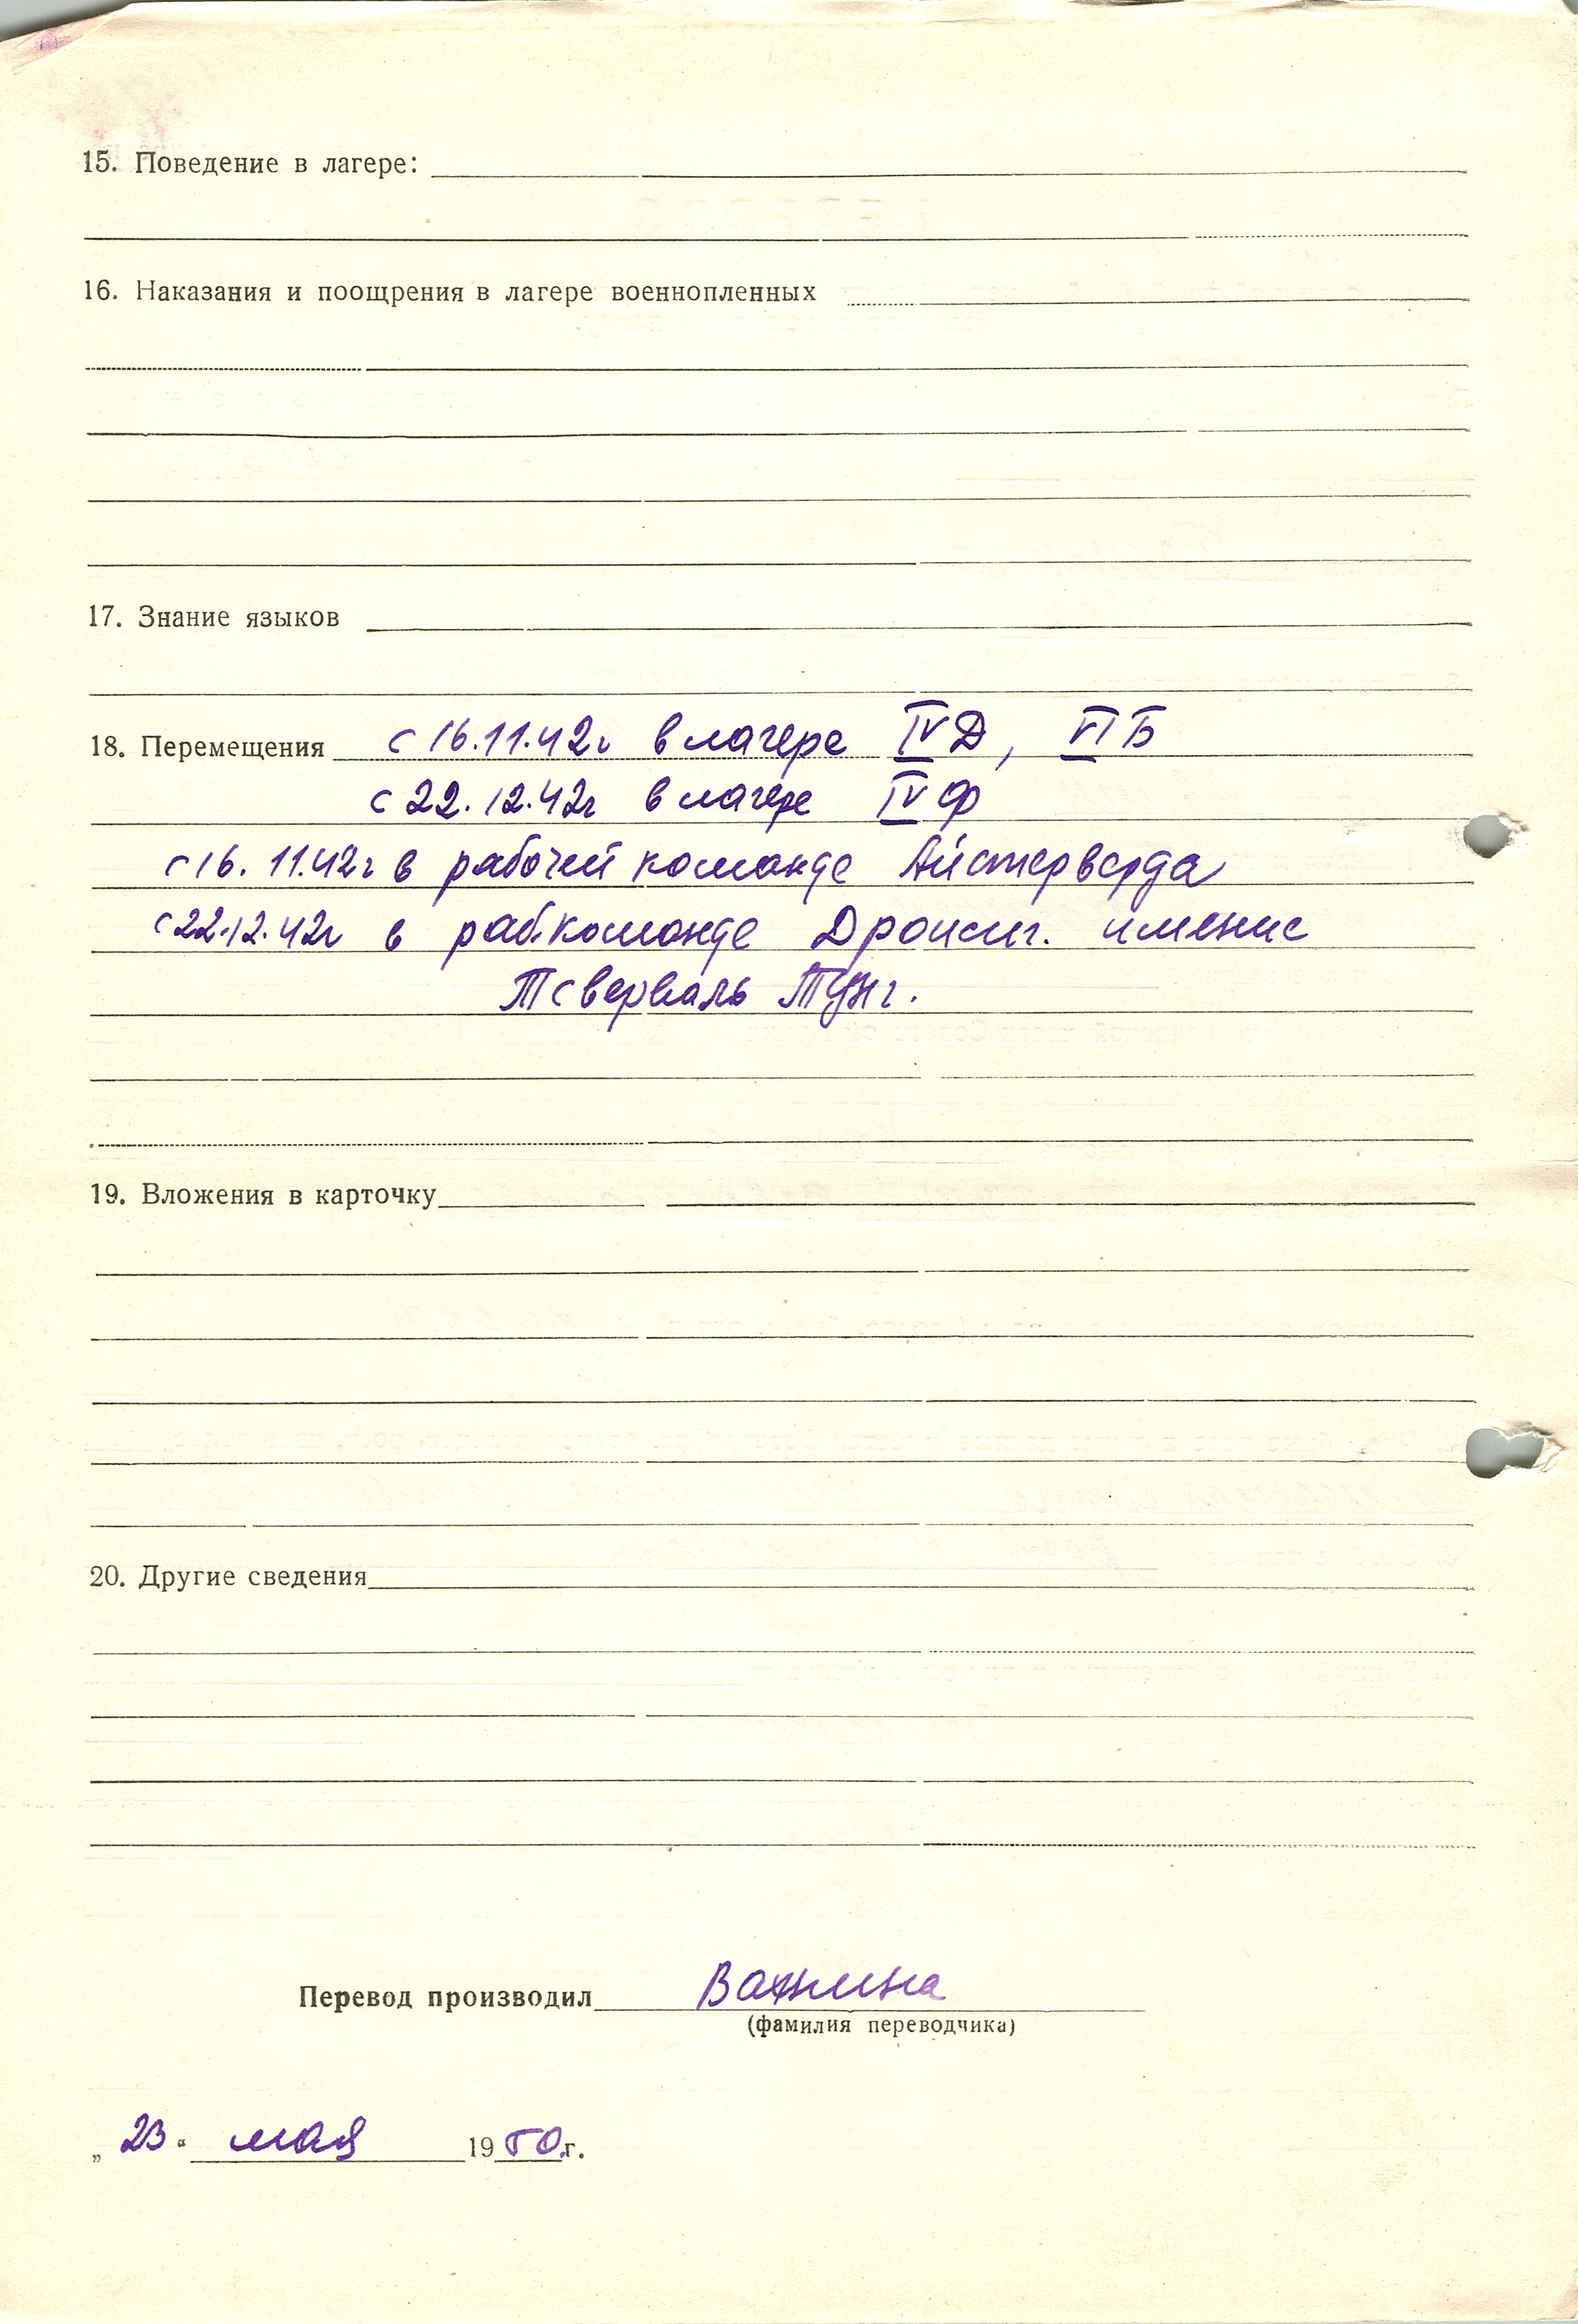 15. Поведение в лагере:
16. Наказания и поощрения в лагере военнопленных
17. Знание языков
18. Перемещения с 16.11.42г в лагере IV Д, VI Б
с 22.12.42г в лагере IV Ф
с 16.11.42г в рабочей команде Айстерверда
с 22.12.42г в раб.команде Дроисиг. имение
Тсверкаль Тунг.
19. Вложения в карточку
20. Другие сведения
Перевод производил Важнина
(фамилия переводчика)
„ 23 “ мая 1950 г.